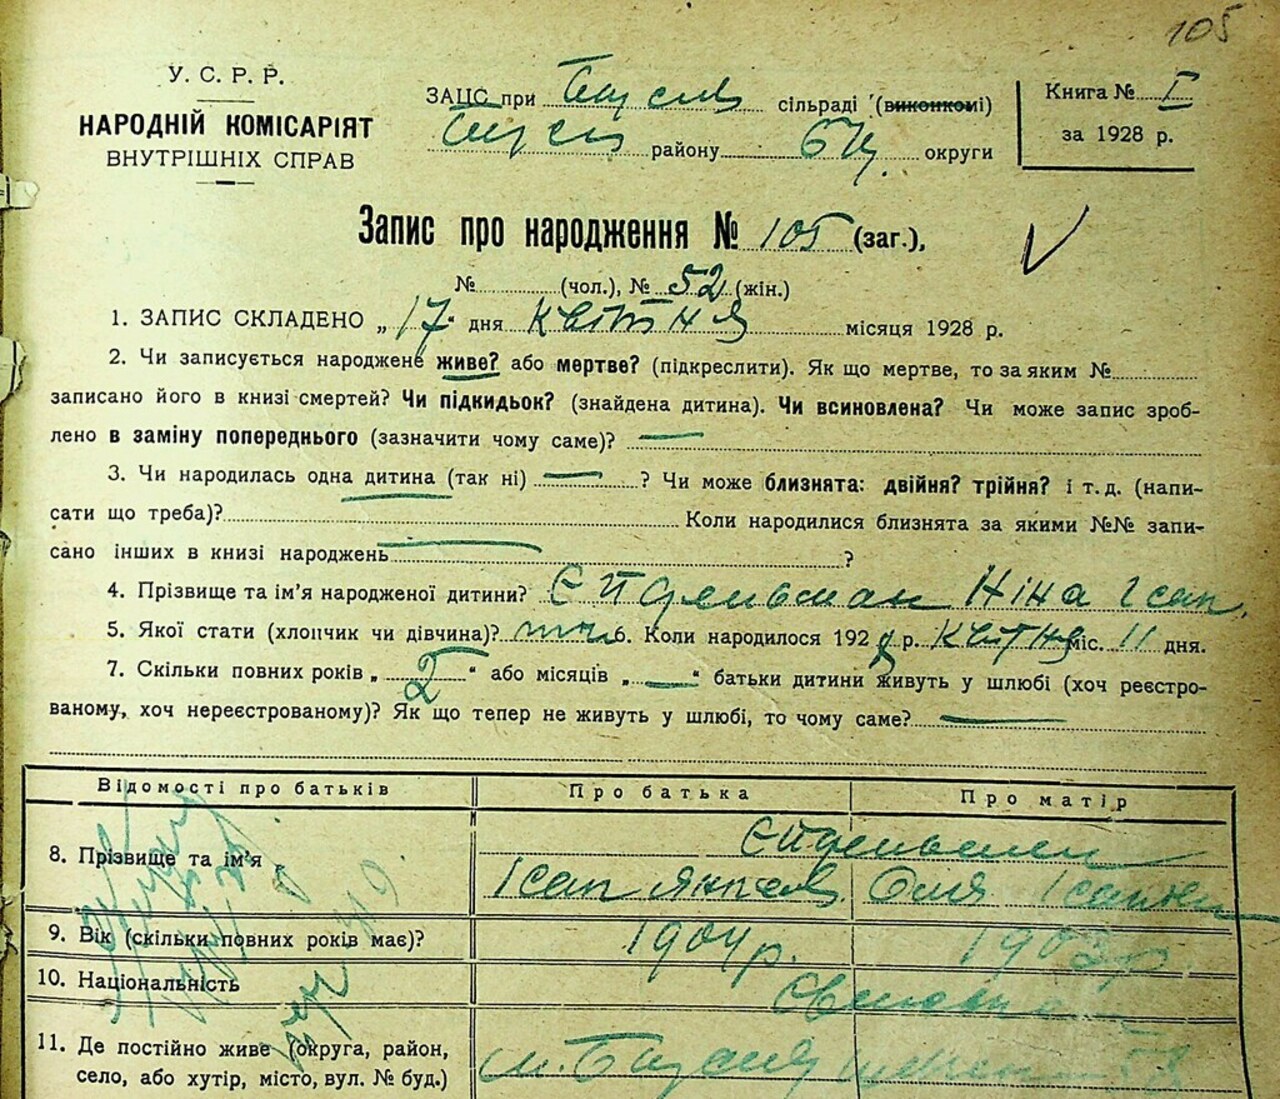 105
У. С. Р. Р.
НАРОДНІЙ КОМІСАРІЯТ
ВНУТРІШНІХ СПРАВ
ЗАЦС при сільраді (виконкомі)
району округи
Книга № I
за 1928 р.
Запис про народження № 105 (заг.),
№ (чол.), № 52 (жін.)
1. ЗАПИС СКЛАДЕНО „17“ дня квітня місяця 1928 р.
2. Чи записується народжене живе? або мертве? (підкреслити). Як що мертве, то за яким №
записано його в книзі смертей? Чи підкидьок? (знайдена дитина). Чи всиновлена? Чи може запис зроб-
лено в заміну попереднього (зазначити чому саме)? —
3. Чи народилась одна дитина (так ні) — ? Чи може близнята: двійня? трійня? і т. д. (напи-
сати що треба)? Коли народилися близнята за якими №№ запи-
сано інших в книзі народжень — ?
4. Прізвище та ім'я народженої дитини? Єйдельман Ніна Ісап.
5. Якої стати (хлопчик чи дівчина)? 6. Коли народилося 1928 р. квітня міс. 11 дня.
7. Скільки повних років „2“ або місяців „—“ батьки дитини живуть у шлюбі (хоч реєстро-
ваному, хоч нереєстрованому)? Як що тепер не живуть у шлюбі, то чому саме? —
Відомості про батьків Про батька Про матір
8. Прізвище та ім'я Єйдельман
Ісап Оля
9. Вік (скільки повних років має)? 1904 р. 1903 р.
10. Національність
11. Де постійно живе (округа, район,
село, або хутір, місто, вул. № буд.) м.